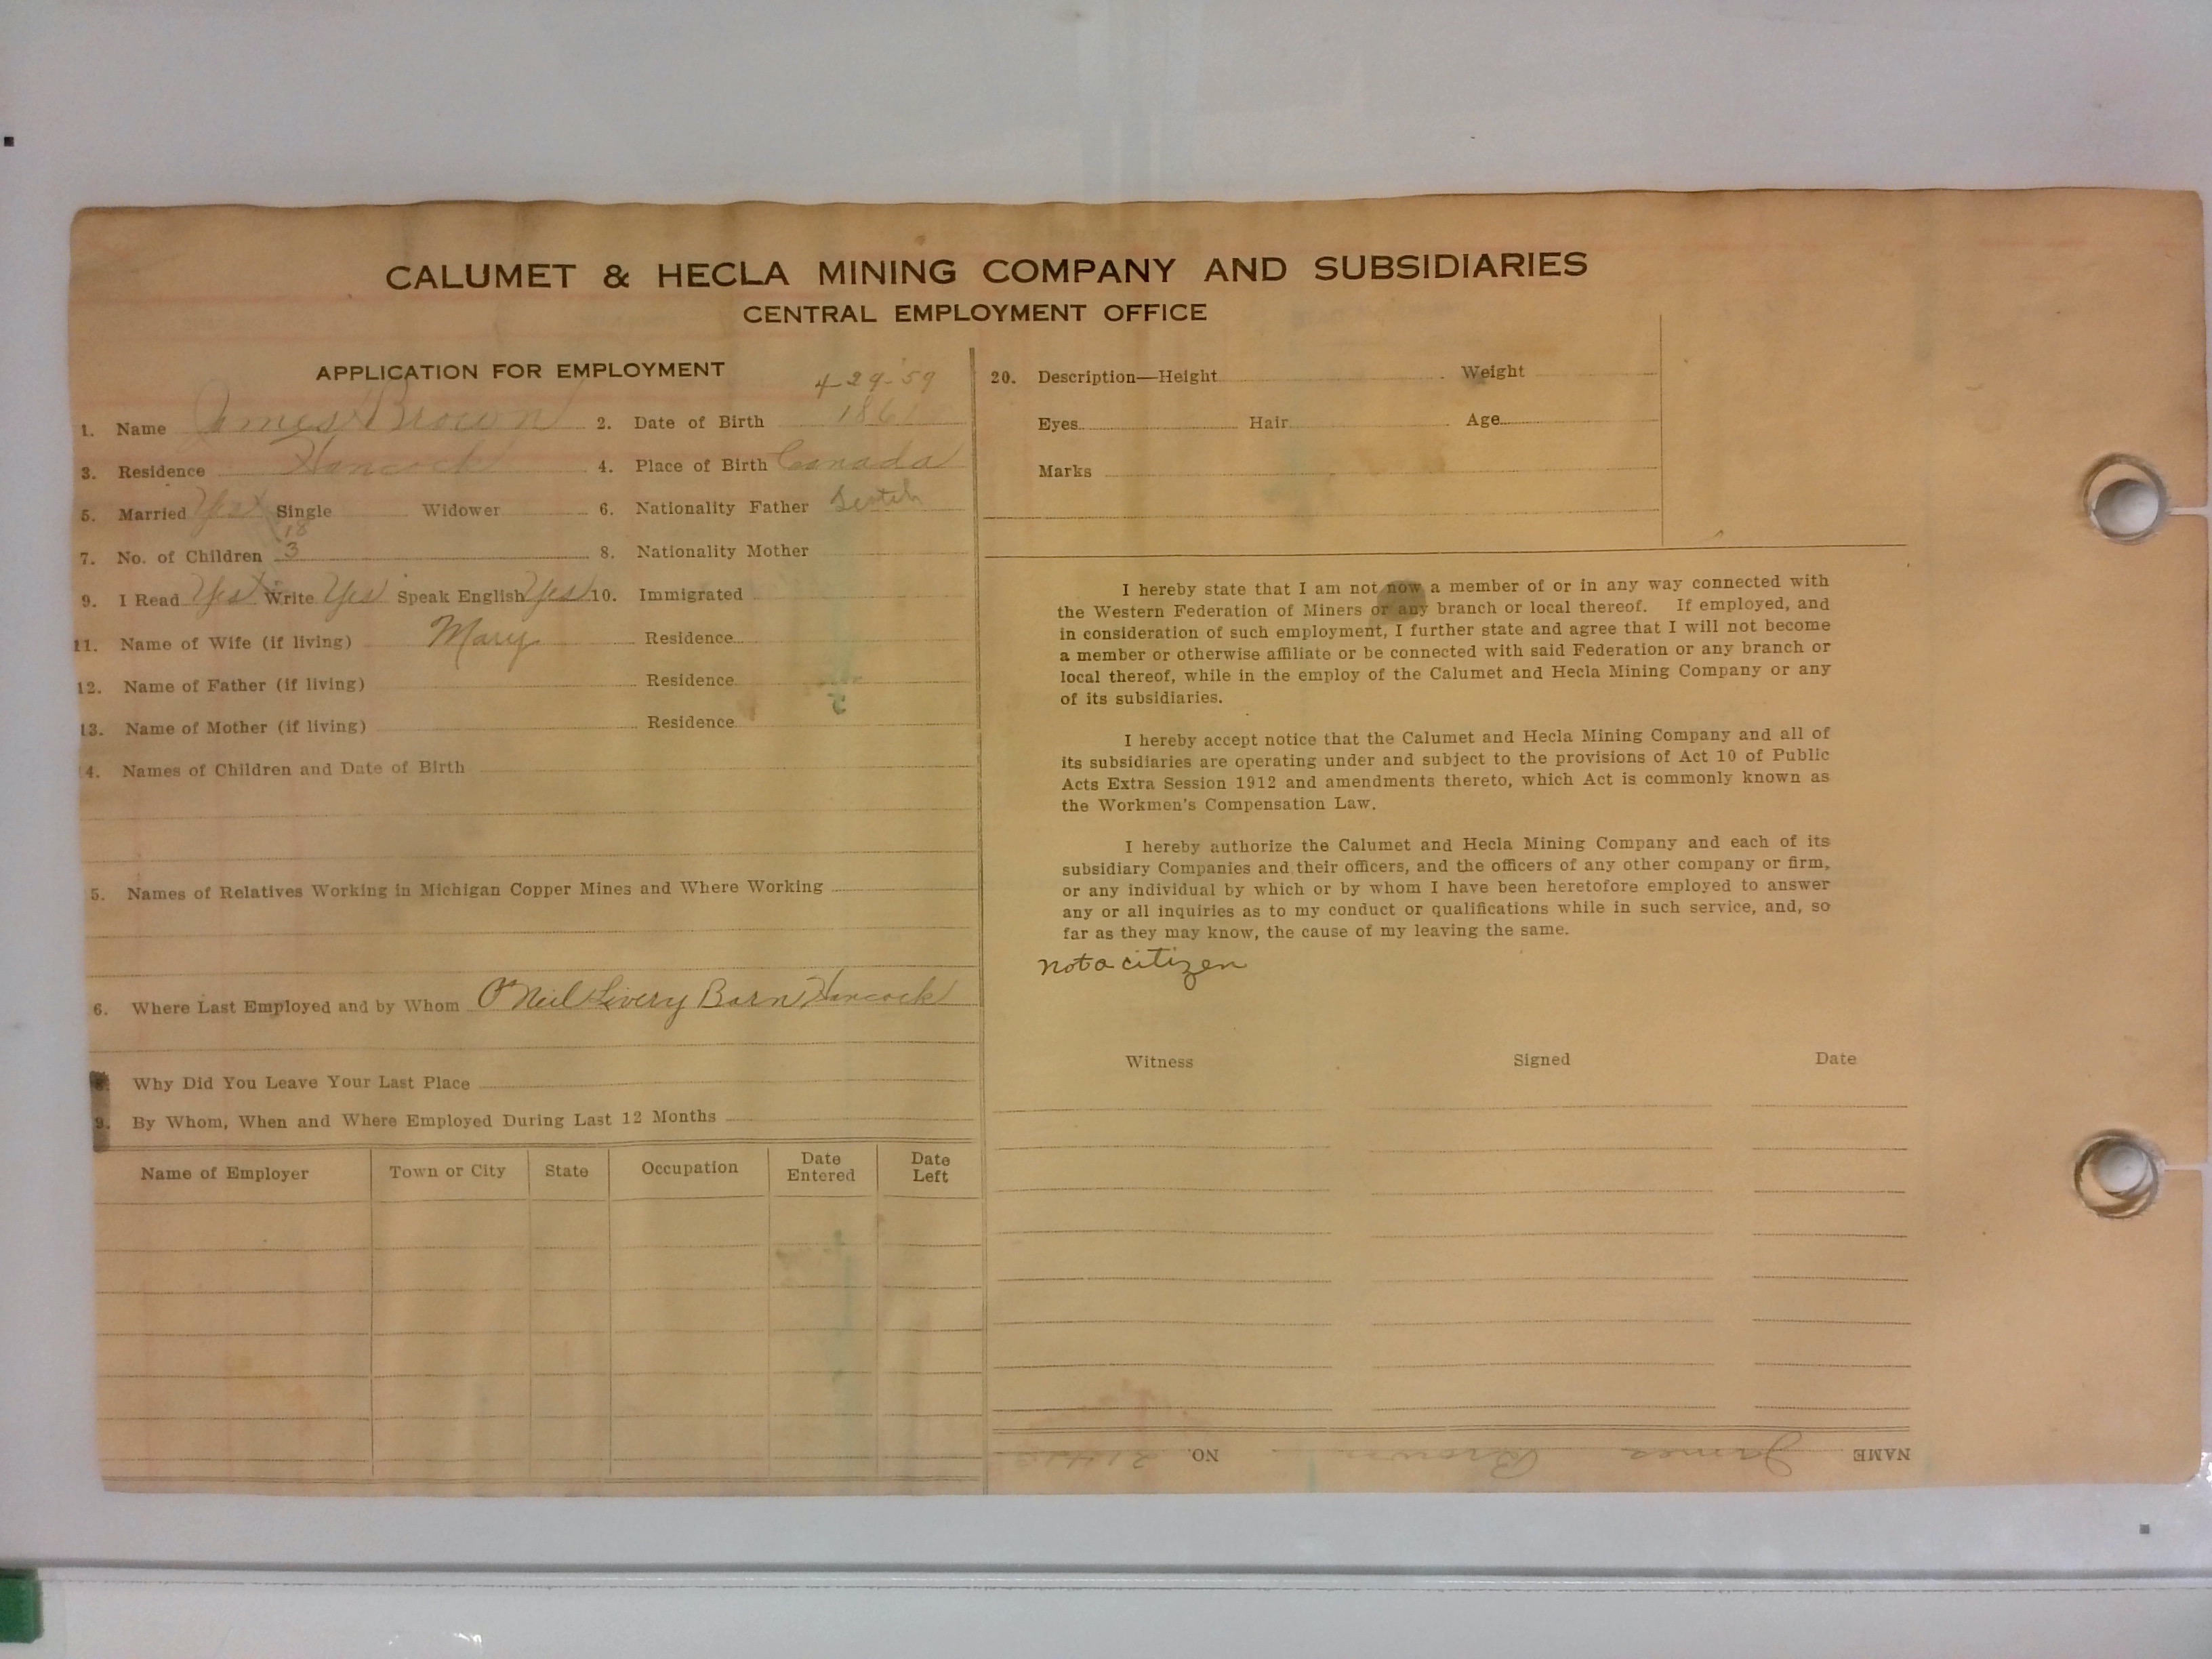 CALUMET & HECLA MINING COMPANY AND SUBSIDIARIES
CENTRAL EMPLOYMENT OFFICE
APPLICATION FOR EMPLOYMENT
4-29-'59
1. Name James Brown 2. Date of Birth 1861
3. Residence Hancock 4. Place of Birth Canada
5. Married Yes Single Widower 6. Nationality Father Scotch
18
7. No. of Children 3 8. Nationality Mother
9. I Read Yes Write Yes Speak English Yes 10. Immigrated
11. Name of Wife (if living) Mary Residence
12. Name of Father (if living) Residence
13. Name of Mother (if living) Residence
4. Names of Children and Date of Birth
5. Names of Relatives Working in Michigan Copper Mines and Where Working
6. Where Last Employed and by Whom O'Neil Livery Barn Hancock
8. Why Did You Leave Your Last Place
9. By Whom, When and Where Employed During Last 12 Months
Name of Employer Town or City State Occupation Date Entered Date Left
20. Description—Height Weight
Eyes Hair Age
Marks
I hereby state that I am not now a member of or in any way connected with
the Western Federation of Miners or any branch or local thereof. If employed, and
in consideration of such employment, I further state and agree that I will not become
a member or otherwise affiliate or be connected with said Federation or any branch or
local thereof, while in the employ of the Calumet and Hecla Mining Company or any
of its subsidiaries.
I hereby accept notice that the Calumet and Hecla Mining Company and all of
its subsidiaries are operating under and subject to the provisions of Act 10 of Public
Acts Extra Session 1912 and amendments thereto, which Act is commonly known as
the Workmen's Compensation Law.
I hereby authorize the Calumet and Hecla Mining Company and each of its
subsidiary Companies and their officers, and the officers of any other company or firm,
or any individual by which or by whom I have been heretofore employed to answer
any or all inquiries as to my conduct or qualifications while in such service, and, so
far as they may know, the cause of my leaving the same.
not a citizen
Witness Signed Date
NAME James Brown NO.